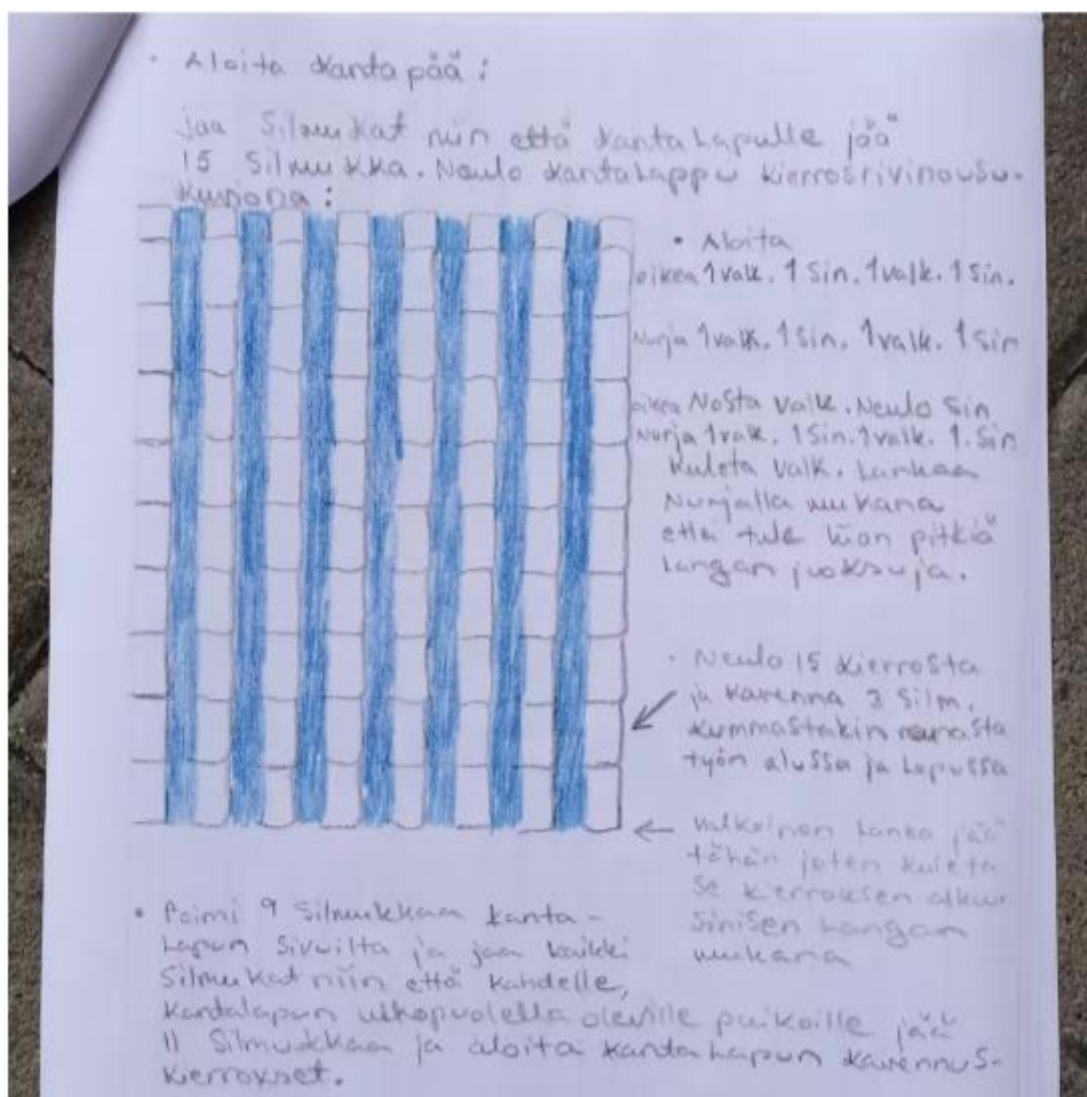 • Aloita kantapää:
jaa Silmukat niin että kantalapulle jää
15 Silmukka. Neulo kantalappu kierrosrivinousu-
kuviona:
• Aloita
oikea 1 valk. 1 Sin. 1 valk. 1 Sin.
Nurja 1 valk. 1 Sin. 1 valk. 1 Sin
oikea Nosta valk. Neulo Sin
Nurja 1 valk. 1 Sin. 1 valk. 1. Sin
Kuleta valk. Lankaa
Nurjalla mukana
ettei tule liian pitkiä
langan juoksuja.
• Neulo 15 kierrosta
ja kavenna 3 Silm.
kummastakin reunasta
työn alussa ja lopussa
← Valkoinen lanka jää
tähän joten kuleta
se kierroksen alkuun
Sinisen langan
mukana
• Poimi 9 Silmukkaa kanta-
lapun Sivuilta ja jaa kaikki
Silmukat niin että kahdelle,
kantalapun ulkopuolella oleville puikoille jää
11 Silmukkaa ja aloita kantalapun kavennus-
kierrokset.